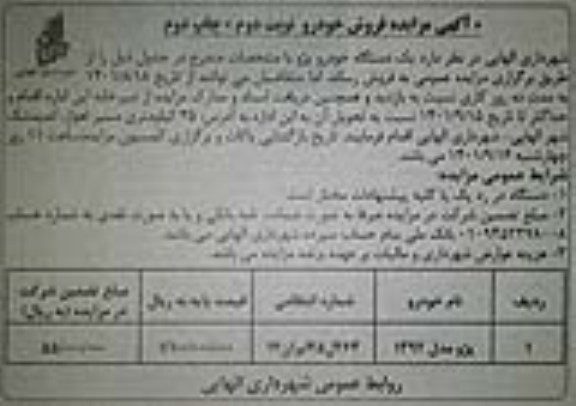 آگهی مزایده فروش خودرو نوبت دوم - چاپ دوم
شهرداری الهایی در نظر دارد یک دستگاه خودرو پژو با مشخصات مندرج در جدول ذیل را از
طریق برگزاری مزایده عمومی به فروش رساند لذا متقاضیان می توانند از تاریخ ۱۴۰۱/۸/۱۵
به مدت ده روز کاری نسبت به بازدید و همچنین دریافت اسناد و مدارک مزایده از دبیرخانه این اداره اقدام و
حداکثر تا تاریخ ۱۴۰۱/۹/۱۵ نسبت به تحویل آن به این اداره به آدرس: ۲۵ کیلومتری مسیر اهواز اندیمشک
شهر الهایی - شهرداری الهایی اقدام فرمایند. تاریخ بازگشایی پاکات و برگزاری کمیسیون مزایده ساعت ۱۱ روز
چهارشنبه ۱۴۰۱/۹/۱۶ می باشد.
شرایط عمومی مزایده:
۱- دستگاه در رد یک یا کلیه پیشنهادات مختار است
۲- مبلغ تضمین شرکت در مزایده صرفا به صورت ضمانت نامه بانکی و یا به صورت نقدی به شماره حساب
بانک ملی بنام حساب سپرده شهرداری الهایی می باشد.
۳- هزینه عوارض شهرداری و مالیات بر عهده برنده مزایده می باشد.
ردیف نام خودرو شماره انتظامی قیمت پایه به ریال مبلغ تضمین شرکت
در مزایده (به ریال)
۱ پژو مدل ۱۳۹۲
روابط عمومی شهرداری الهایی